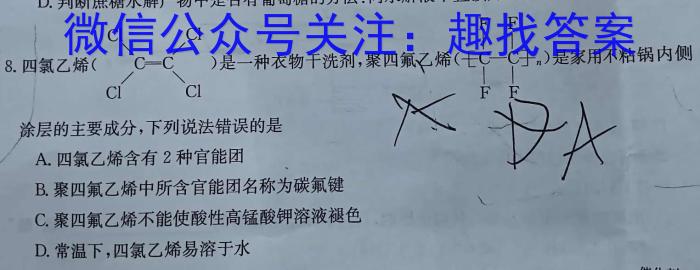 D. 判断蔗糖水解产物中是否有葡萄糖的方法:
微信公众号关注：趣找答案
8. 四氯乙烯(
Cl Cl
C=C
Cl Cl
)是一种衣物干洗剂,聚四氟乙烯(
F F
C C
F F
n
)是家用不粘锅内侧
涂层的主要成分,下列说法错误的是
X D A
A. 四氯乙烯含有 2 种官能团
B. 聚四氟乙烯中所含官能团名称为碳氟键
C. 聚四氟乙烯不能使酸性高锰酸钾溶液褪色
D. 常温下,四氯乙烯易溶于水